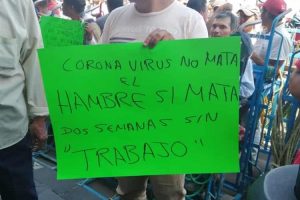 CORONA VIRUS NO MATA
EL
HAMBRE SI MATA
DOS SEMANAS SIN
"TRABAJO"